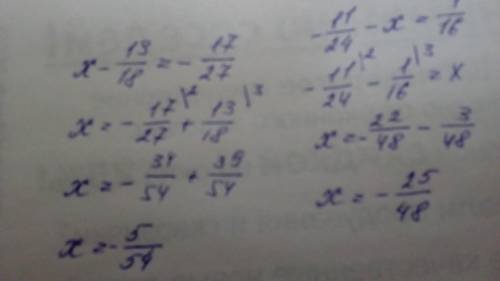 x - 13/18 = - 17/27
x = - 17/27 \2 + 13/18 \3
x = - 34/54 + 39/54
x = - 5/54
- 11/24 - x = 1/16
- 11/24 \2 - 1/16 \3 = x
x = - 22/48 - 3/48
x = - 25/48